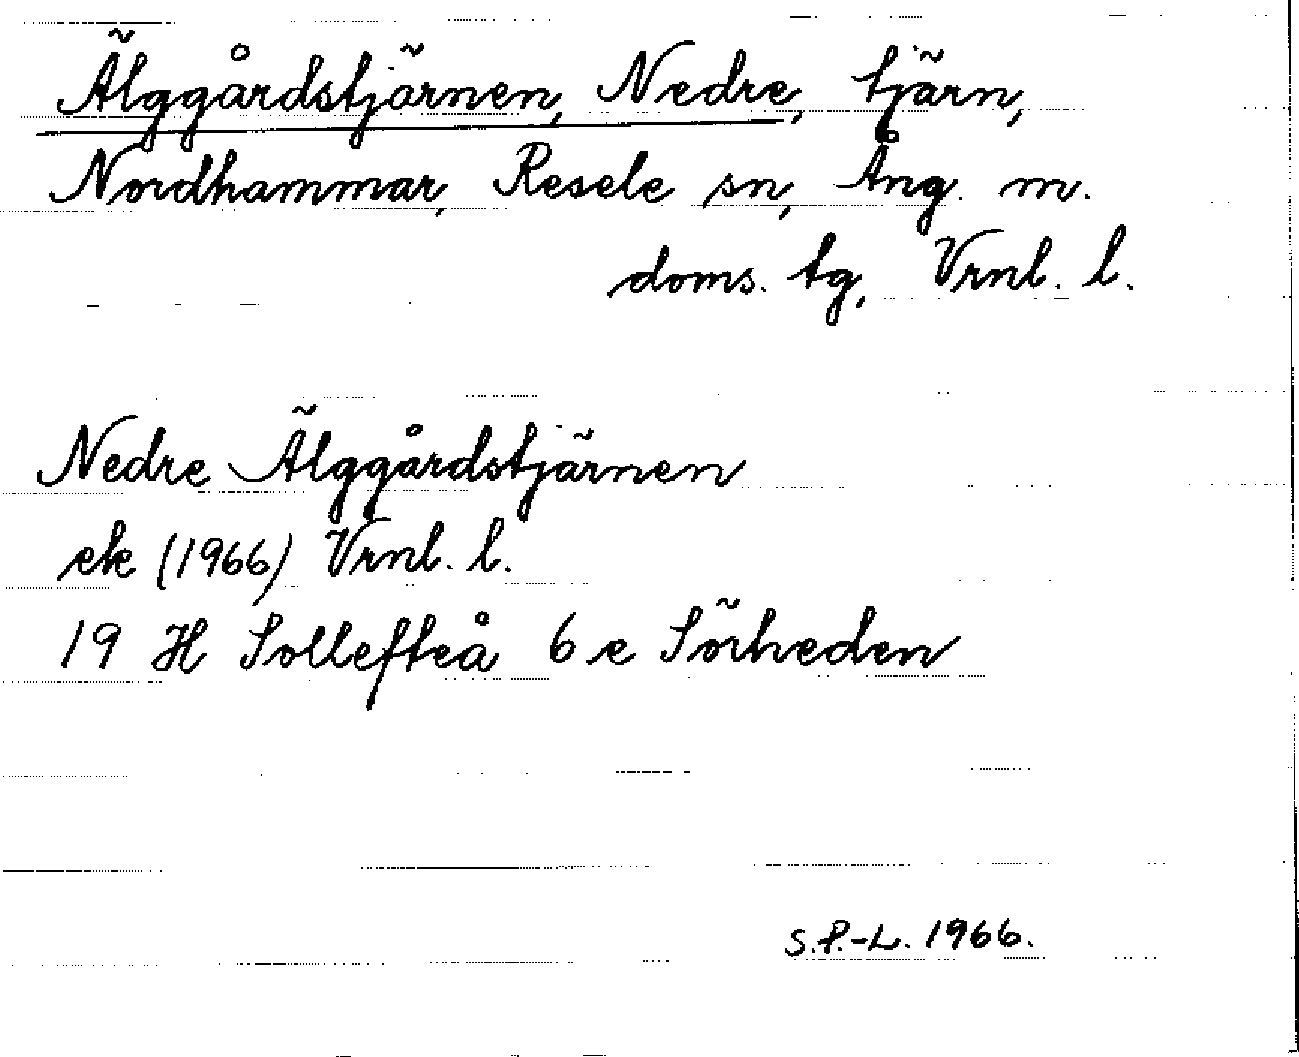 Älggårdstjärnen, Nedre, tjärn,
Nordhammar, Resele sn, Ång. m.
doms. tg, Vrnl. l.
Nedre Älggårdstjärnen
ek (1966) Vrnl. l.
19 H Sollefteå 6 e Sörheden
S.P.-L. 1966.